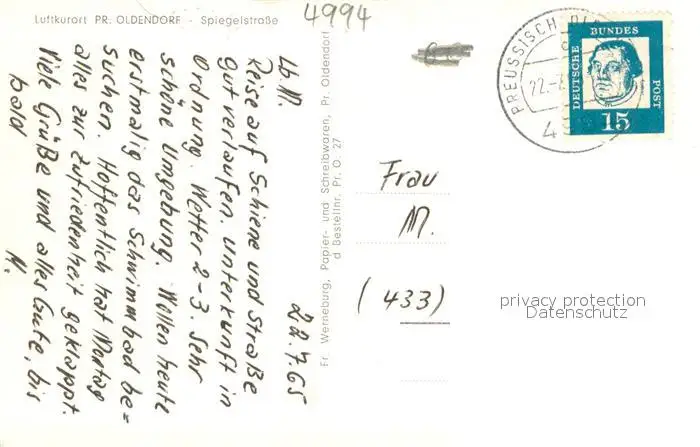 Luftkurort PR. OLDENDORF - Spiegelstraße
4994
22.7.65
Lb. M.
Reise auf Schiene und Straße
gut verlaufen. Unterkunft in
Ordnung. Wetter 2-3. Sehr
schöne Umgebung. Wollen heute
erstmalig das Schwimmbad be=
suchen. Hoffentlich hat Montag
alles zur Zufriedenheit geklappt.
Viele Grüße und alles Gute, bis
bald
Fr. Werneburg, Papier- und Schreibwaren, Pr. Oldendorf
d Bestellnr. Pr. O. 27
PREUSSISCH
22.-7
DEUTSCHE
BUNDES
POST
15
Frau
M.
(433)
privacy protection
Datenschutz